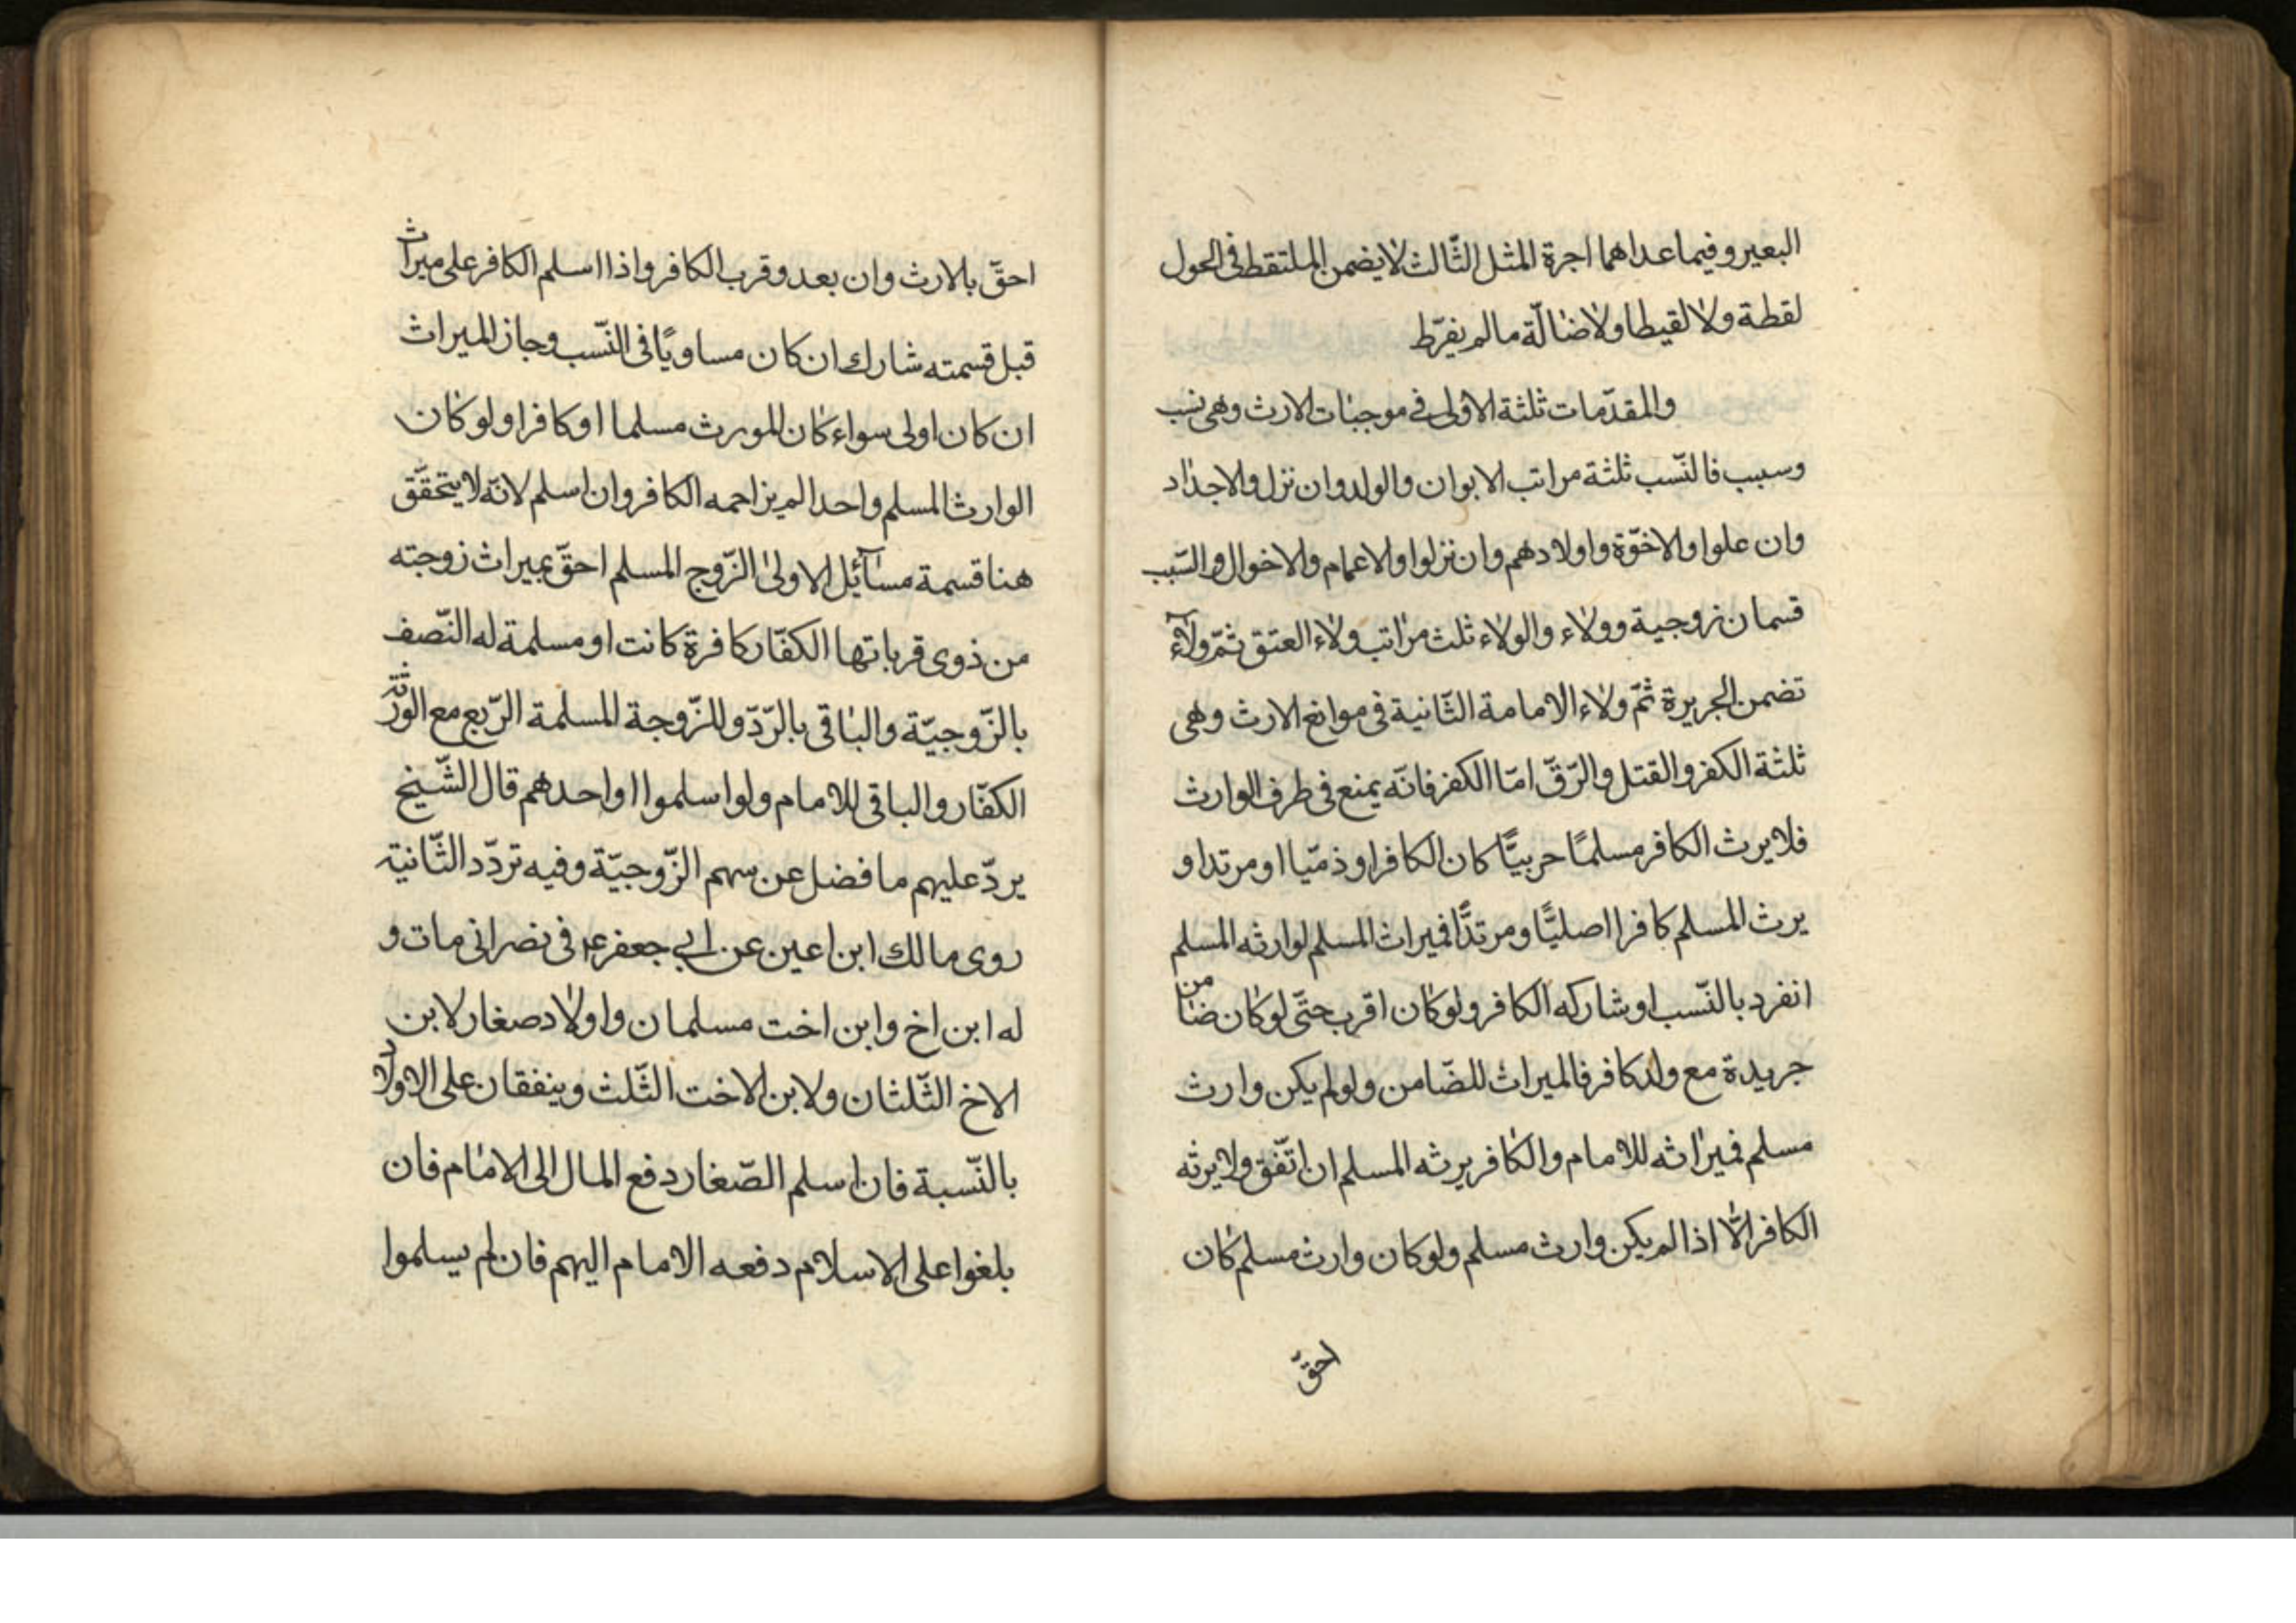 البعير وفيما عداهما اجرة المثل الثّالث لا يضمن الملتقط فى الحول
لقطة ولا لقيطا ولا ضالّة ما لم يفرّط
والمقدّمات ثلثة الاولى فى موجبات الارث وهى نسب
وسبب فالنّسب ثلثة مراتب الابوان والولد وان نزل والاجداد
وان علوا والاخوّة واولادهم وان نزلوا والاعمام والاخوال والسّبب
قسمان زوجية وولاء والولاء ثلث مراتب ولاء العتق ثمّ ولآء
تضمن الجريرة ثمّ ولاء الامامة الثّانية فى موانع الارث وهى
ثلثة الكفر والقتل والرّقّ امّا الكفر فانّه يمنع فى طرف الوارث
فلا يرث الكافر مسلمًا حربيًّا كان الكافر او ذمّيا او مرتدا و
يرث المسلم كافرا اصليًّا ومرتدًّا فميراث المسلم لوارثه المسلم
انفرد بالنّسب او شاركه الكافر ولو كان اقرب حتّى لو كان ضامن
جريدة مع ولد كافر فالميراث للضّامن ولو لم يكن وارث
مسلم فميراثه للامام والكافر يرثه المسلم ان اتّفق ولا يرثه
الكافر الّا اذا لم يكن وارث مسلم ولو كان وارث مسلم كان
احقّ
احقّ بالارث وان بعد وقرب الكافر واذا اسلم الكافر على ميراث
قبل قسمته شارك ان كان مساويًا فى النّسب وحاز الميراث
ان كان اولى سواء كان المورث مسلما او كافرا ولو كان
الوارث المسلم واحدا لم يزاحمه الكافر وان اسلم لانّه لا يتحقّق
هنا قسمة مسآئل الاولى الزّوج المسلم احقّ بميراث زوجته
من ذوى قرباتها الكفّار كافرة كانت او مسلمة له النّصف
بالزّوجيّة والباقى بالرّدّ وللزّوجة المسلمة الرّبع مع الورثة
الكفّار والباقى للامام ولو اسلموا او احدهم قال الشّيخ
يردّ عليهم ما فضل عن سهم الزّوجيّة وفيه تردّد الثّانية
روى مالك ابن اعين عن ابى جعفر ع فى نصرانى مات و
له ابن اخ وابن اخت مسلمان واولاد صغار لابن
الاخ الثّلثان ولابن الاخت الثّلث وينفقان على الاولاد
بالنّسبة فان اسلم الصّغار دفع المال الى الامام فان
بلغوا على الاسلام دفعه الامام اليهم فان لم يسلموا